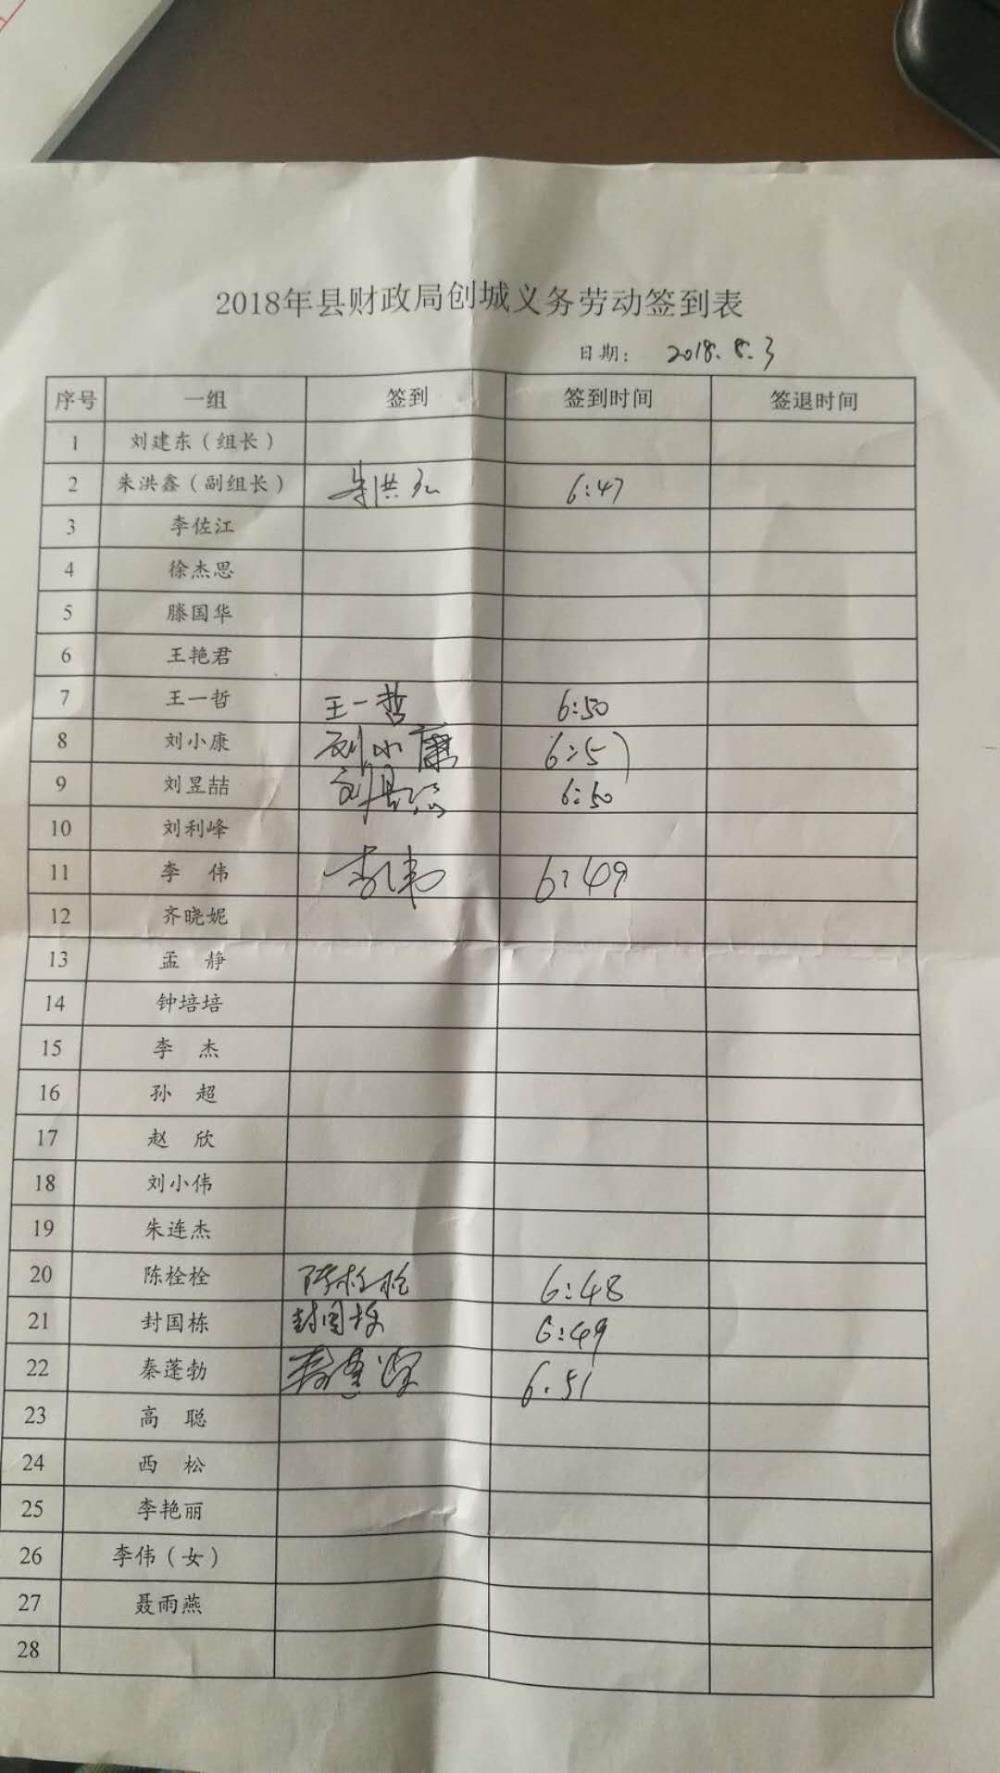 2018年县财政局创城义务劳动签到表
日期： 2018.8.3
序号 一组 签到 签到时间 签退时间
1 刘建东（组长）
2 朱洪鑫（副组长） 朱洪 6:47
3 李佐江
4 徐杰思
5 滕国华
6 王艳君
7 王一哲 王一哲 6:50
8 刘小康 刘小康 6:51
9 刘昱喆 刘昱 6:50
10 刘利峰
11 李 伟 李伟 6:49
12 齐晓妮
13 孟 静
14 钟培培
15 李 杰
16 孙 超
17 赵 欣
18 刘小伟
19 朱连杰
20 陈栓栓 陈栓栓 6:48
21 封国栋 封国栋 6:49
22 秦蓬勃 秦蓬勃 6.51
23 高 聪
24 西 松
25 李艳丽
26 李伟（女）
27 聂雨燕
28